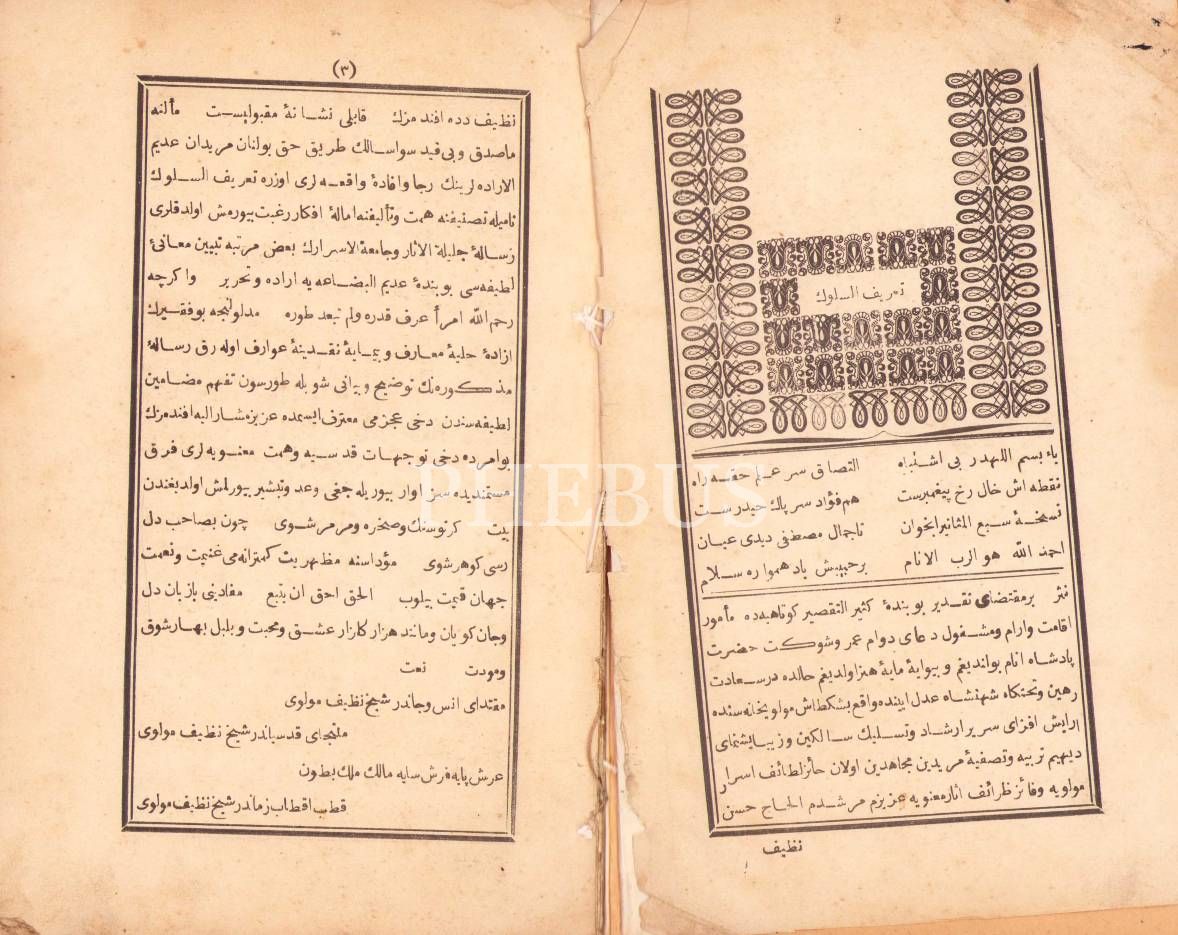 تعريف السلوك
باء بسم اللهدر بی اشتباه التصاق سر علم حقه راه
نقطه اش خال رخ پیغمبرست هم فؤاد سر پاك حیدرست
نسخهٔ سبع المثانیرابخوان تاجمال مصطفی دیدی عیان
احمد الله هو الرب الانام بر حبیبش باد همواره سلام
نثر برمقتضای تقدیر بو بندهٔ كثیر التقصیر كوتاهیدده مأمور
اقامت وارام ومشغول دعای دوام عمر وشوكت حضرت
پادشاه انام بولندیغم و بیوایهٔ مایهٔ هنراولدیغم حالده درسعادت
رهین وتختكاه شهنشاه عدل ایینده واقع بشكطاش مولویخانه سنده
ارایش افزای سریر ارشاد وتسلیك سالكین وزیبایشنمای
دیهیم تربیه وتصفیهٔ مریدین مجاهدین اولان حائز لطائف اسرار
مولویه وفائز ظرائف اثار معنویه عزیزم مرشدم الحاج حسن
نظیف
(٣)
نظیف دده افندمزك قابلی نشانهٔ مقبولیست مألنه
ماصدق وبی قید سواسالك طریق حق بولنان مریدان عدیم
الاراده لرینك رجا وافادهٔ واقعه لری اوزره تعریف السلوك
نامیله تصنیفنه همت وتألیفنه امالهٔ افكار رغبت بیورمش اولدقلری
رسالهٔ جلیلة الاثار وجامعة الاسرارك بعض مرتبه تبیین معانیٔ
لطیفه سی بو بندهٔ عدیم البضاعه یه اراده وتحریر واكرچه
رحم الله امرأ عرف قدره ولم تبعد طوره مدلولنجه بوفقیرك
ازادهٔ حلیهٔ معارف و بیمایهٔ نقدینهٔ عوارف اوله رق رسالهٔ
مذكوره نك توضیح و بیانی شویله طورسون تفهم مضامین
لطیفه سندن دخی عجزمی معترف ایسمده عزیزمشارالیه افندمزك
بوامرده دخی توجهات قدسیه وهمت معنویه لری فرق
مستمندیده سزاوار بیوریله جغی وعد وتبشیر بیورلمش اولدیغندن
بیت كرتوسنك وصخره ومرمر شوی چون بصاحب دل
رسی كوهر شوی مؤداسنه مظهریت كمترانه می غنیمت ونعمت
جهان قیمت بیلوب الحق احق ان یتبع مفادینی بازبان دل
وجان كویان ومانند هزار كازار عشق ومحبت و بلبل بهار شوق
ومودت نعت
مقتدای انس وجاندر شیخ نظیف مولوی
ملتجای قدسیاندر شیخ نظیف مولوی
عرش پایه فرش سایه مالك ملك بطون
قطب اقطاب زماندر شیخ نظیف مولوی
PHEBUS